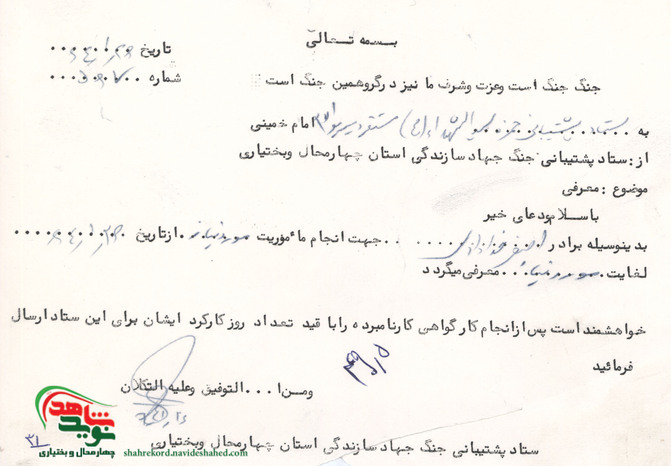 بسمه تعالی
تاریخ
شماره
جنگ جنگ است وعزت وشرف ما نیز درگروهمین جنگ است
به ستاد پشتیبانی حمزه سیدالشهداء(ع) مستقر در امام خمینی
از: ستاد پشتیبانی جنگ جهاد سازندگی استان چهارمحال وبختیاری
موضوع : معرفی
باسلام ودعای خیر
بدینوسیله برادر جهت انجام مأموریت مورد نیاز ازتاریخ
لغایت مورد نیاز معرفی میگردد
خواهشمند است پس ازانجام کار گواهی کارنامبرده رابا قید تعداد روز کارکرد ایشان برای این ستاد ارسال
فرمائید
ومن ا... التوفیق وعلیه التکلان
ستاد پشتیبانی جنگ جهاد سازندگی استان چهارمحال وبختیاری
نوید شاهد
چهارمحال و بختیاری
shahrekord.navideshahed.com
۳۱